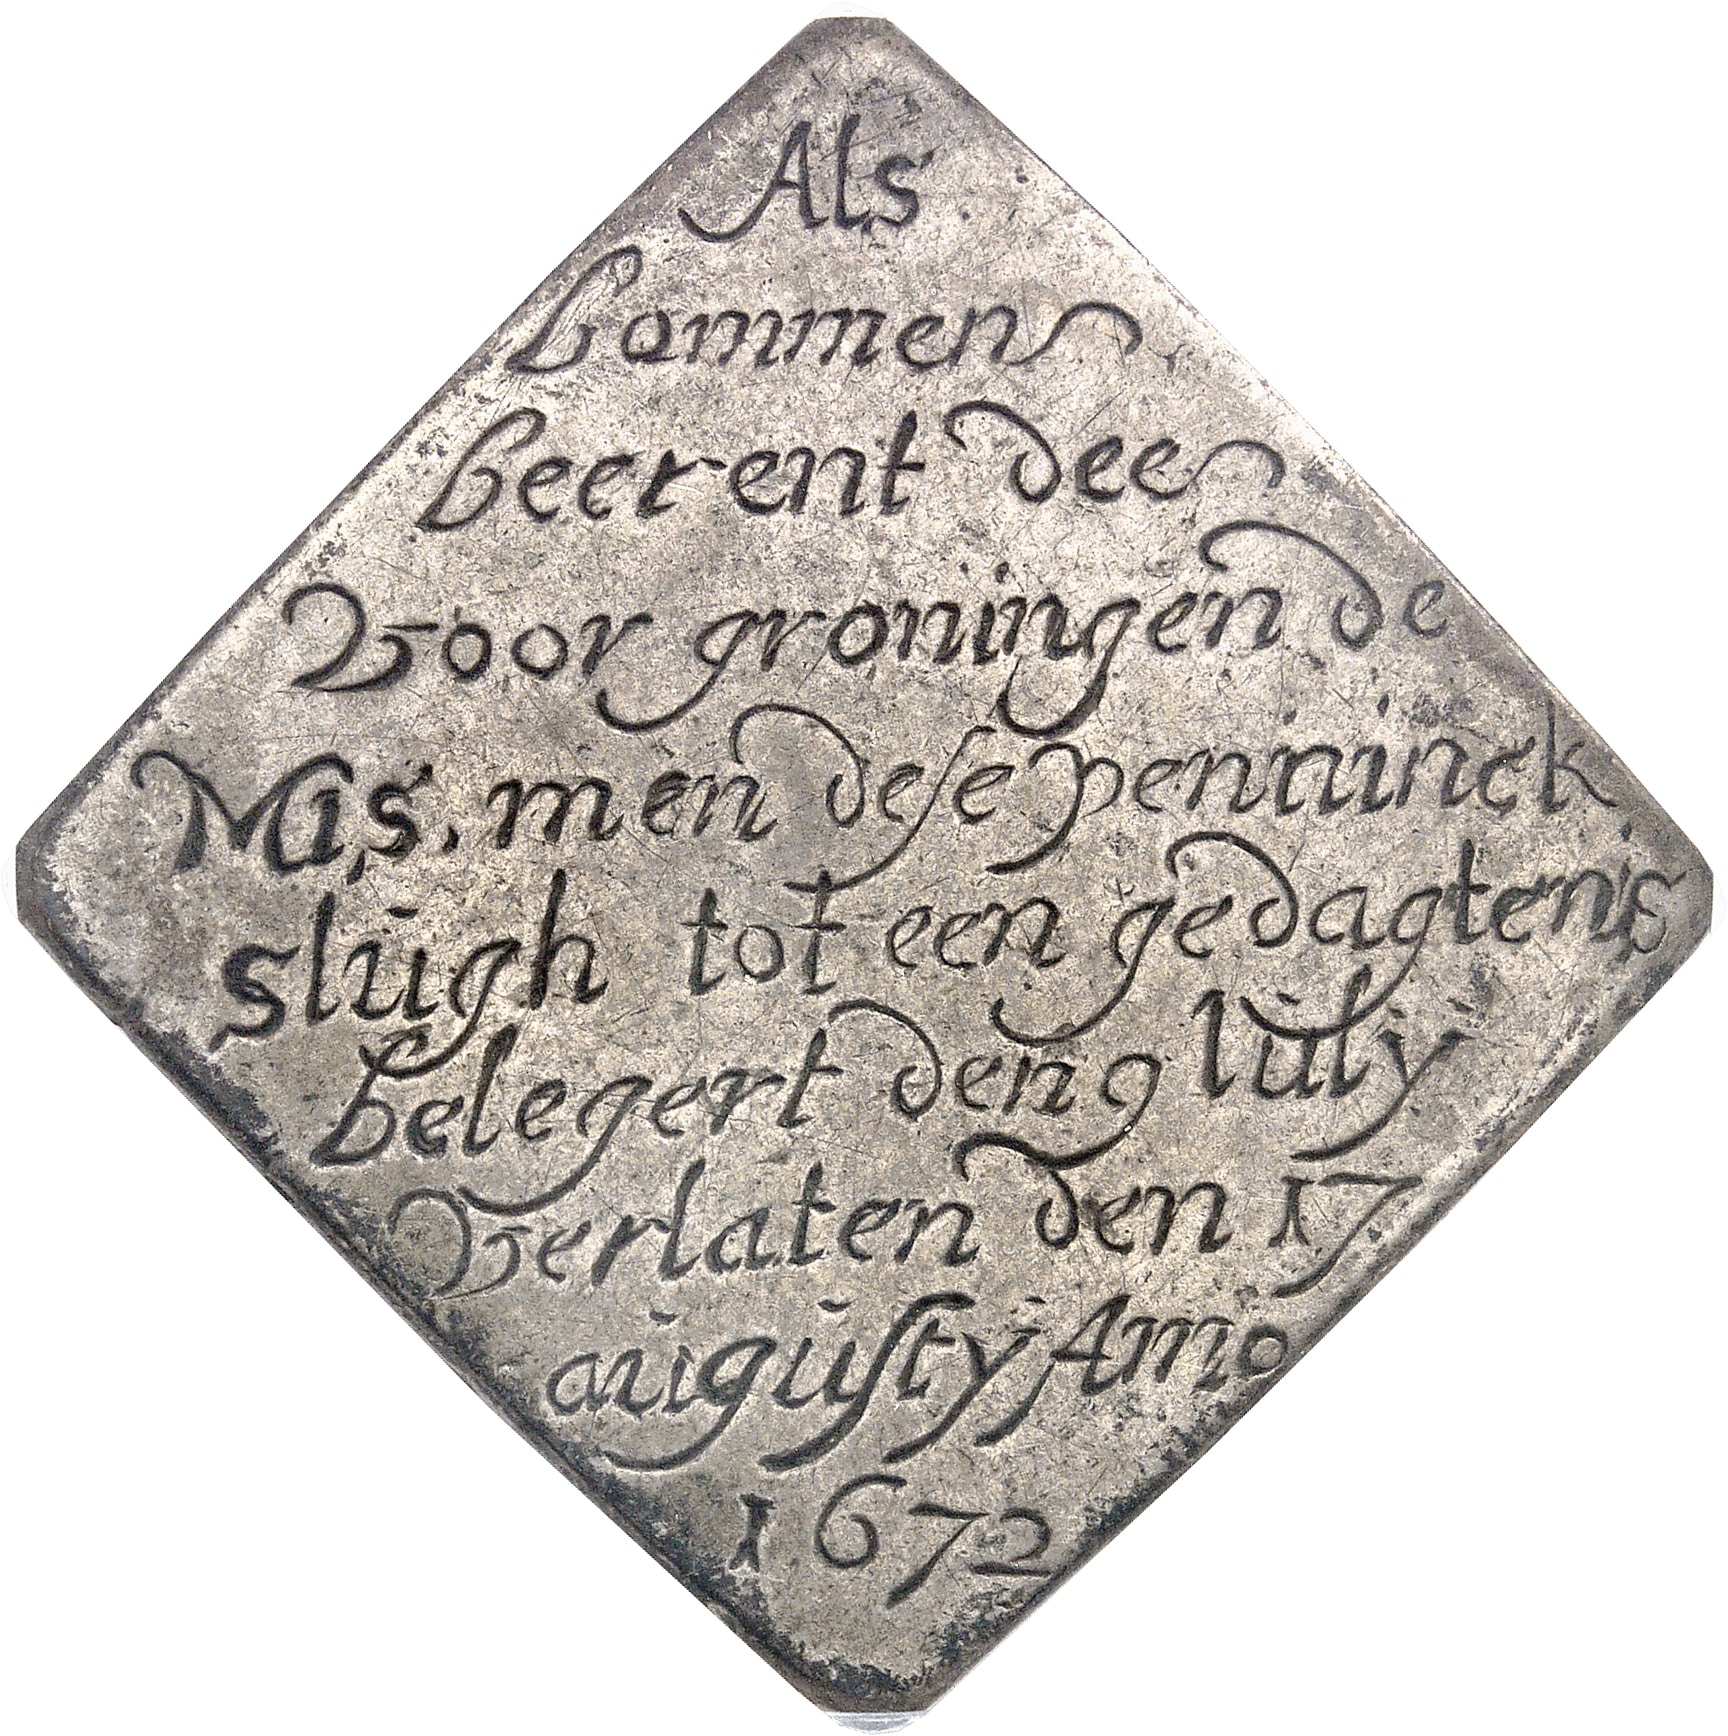 Als
Bommen
beerent dee
Voor groningen de
Mis, men dese penninck
slúgh tot een gedagtenis
belegert den 9 Iúlÿ
Verlaten den 17
aúgústÿ Anno
1672